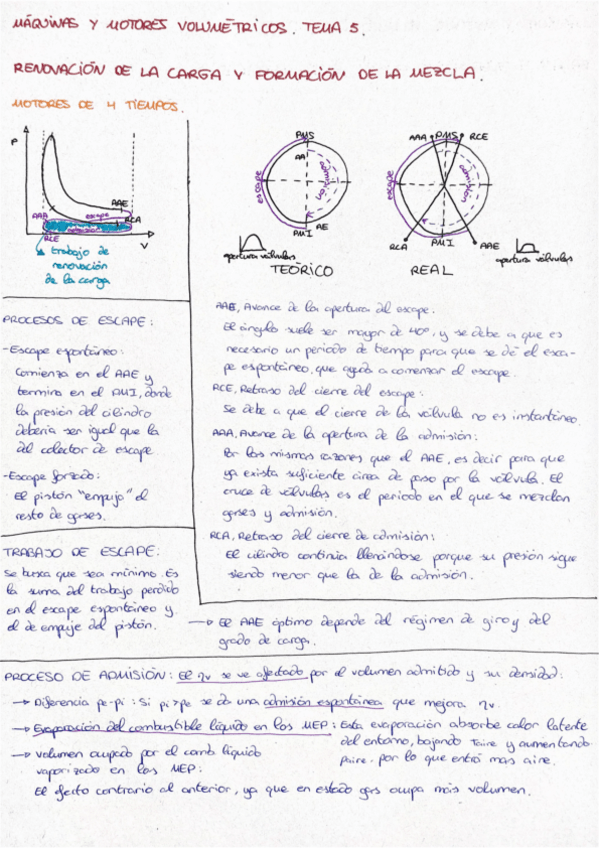 MÁQUINAS Y MOTORES VOLUMÉTRICOS. TEMA 5.
RENOVACIÓN DE LA CARGA Y FORMACIÓN DE LA MEZCLA.
MOTORES DE 4 TIEMPOS.
P
AAE
escape
AAA
RCA
RCE
V
trabajo de
renovación
de la carga
PMS
AA
escape
admisión
AE
PMI
apertura válvulas
TEÓRICO
AAA
PMS
RCE
escape
admisión
RCA
PMI
AAE
apertura válvulas
REAL
PROCESOS DE ESCAPE:
-Escape espontáneo:
Comienza en el AAE y
termina en el PMI, donde
la presión del cilindro
debería ser igual que la
del colector de escape.
-Escape forzado:
El pistón "empuja" el
resto de gases.
TRABAJO DE ESCAPE:
Se busca que sea mínimo. Es
la suma del trabajo perdido
en el escape espontáneo y
el de empuje del pistón.
AAE, Avance de la apertura del escape.
El ángulo suele ser mayor de 40º, y se debe a que es
necesario un periodo de tiempo para que se dé el esca-
pe espontáneo, que ayuda a comenzar el escape.
RCE, Retraso del cierre del escape:
Se debe a que el cierre de la válvula no es instantáneo.
AAA, Avance de la apertura de la admisión:
Por las mismas razones que el AAE, es decir para que
ya exista suficiente área de paso por la válvula. El
cruce de válvulas es el periodo en el que se mezclan
gases y admisión.
RCA, Retraso del cierre de admisión:
El cilindro continúa llenándose porque su presión sigue
siendo menor que la de la admisión.
→ El AAE óptimo depende del régimen de giro y del
grado de carga.
PROCESO DE ADMISIÓN: El ηv se ve afectado por el volumen admitido y su densidad:
→ Diferencia pe-pi: Si pi>pe se da una admisión espontánea que mejora ηv.
→ Evaporación del combustible líquido en los MEP: Esta evaporación absorbe calor latente
del entorno, bajando Taire y aumentando
ρaire, por lo que entra mas aire.
→ Volumen ocupado por el comb líquido
vaporizado en los MEP:
El efecto contrario al anterior, ya que en estado gas ocupa más volumen.